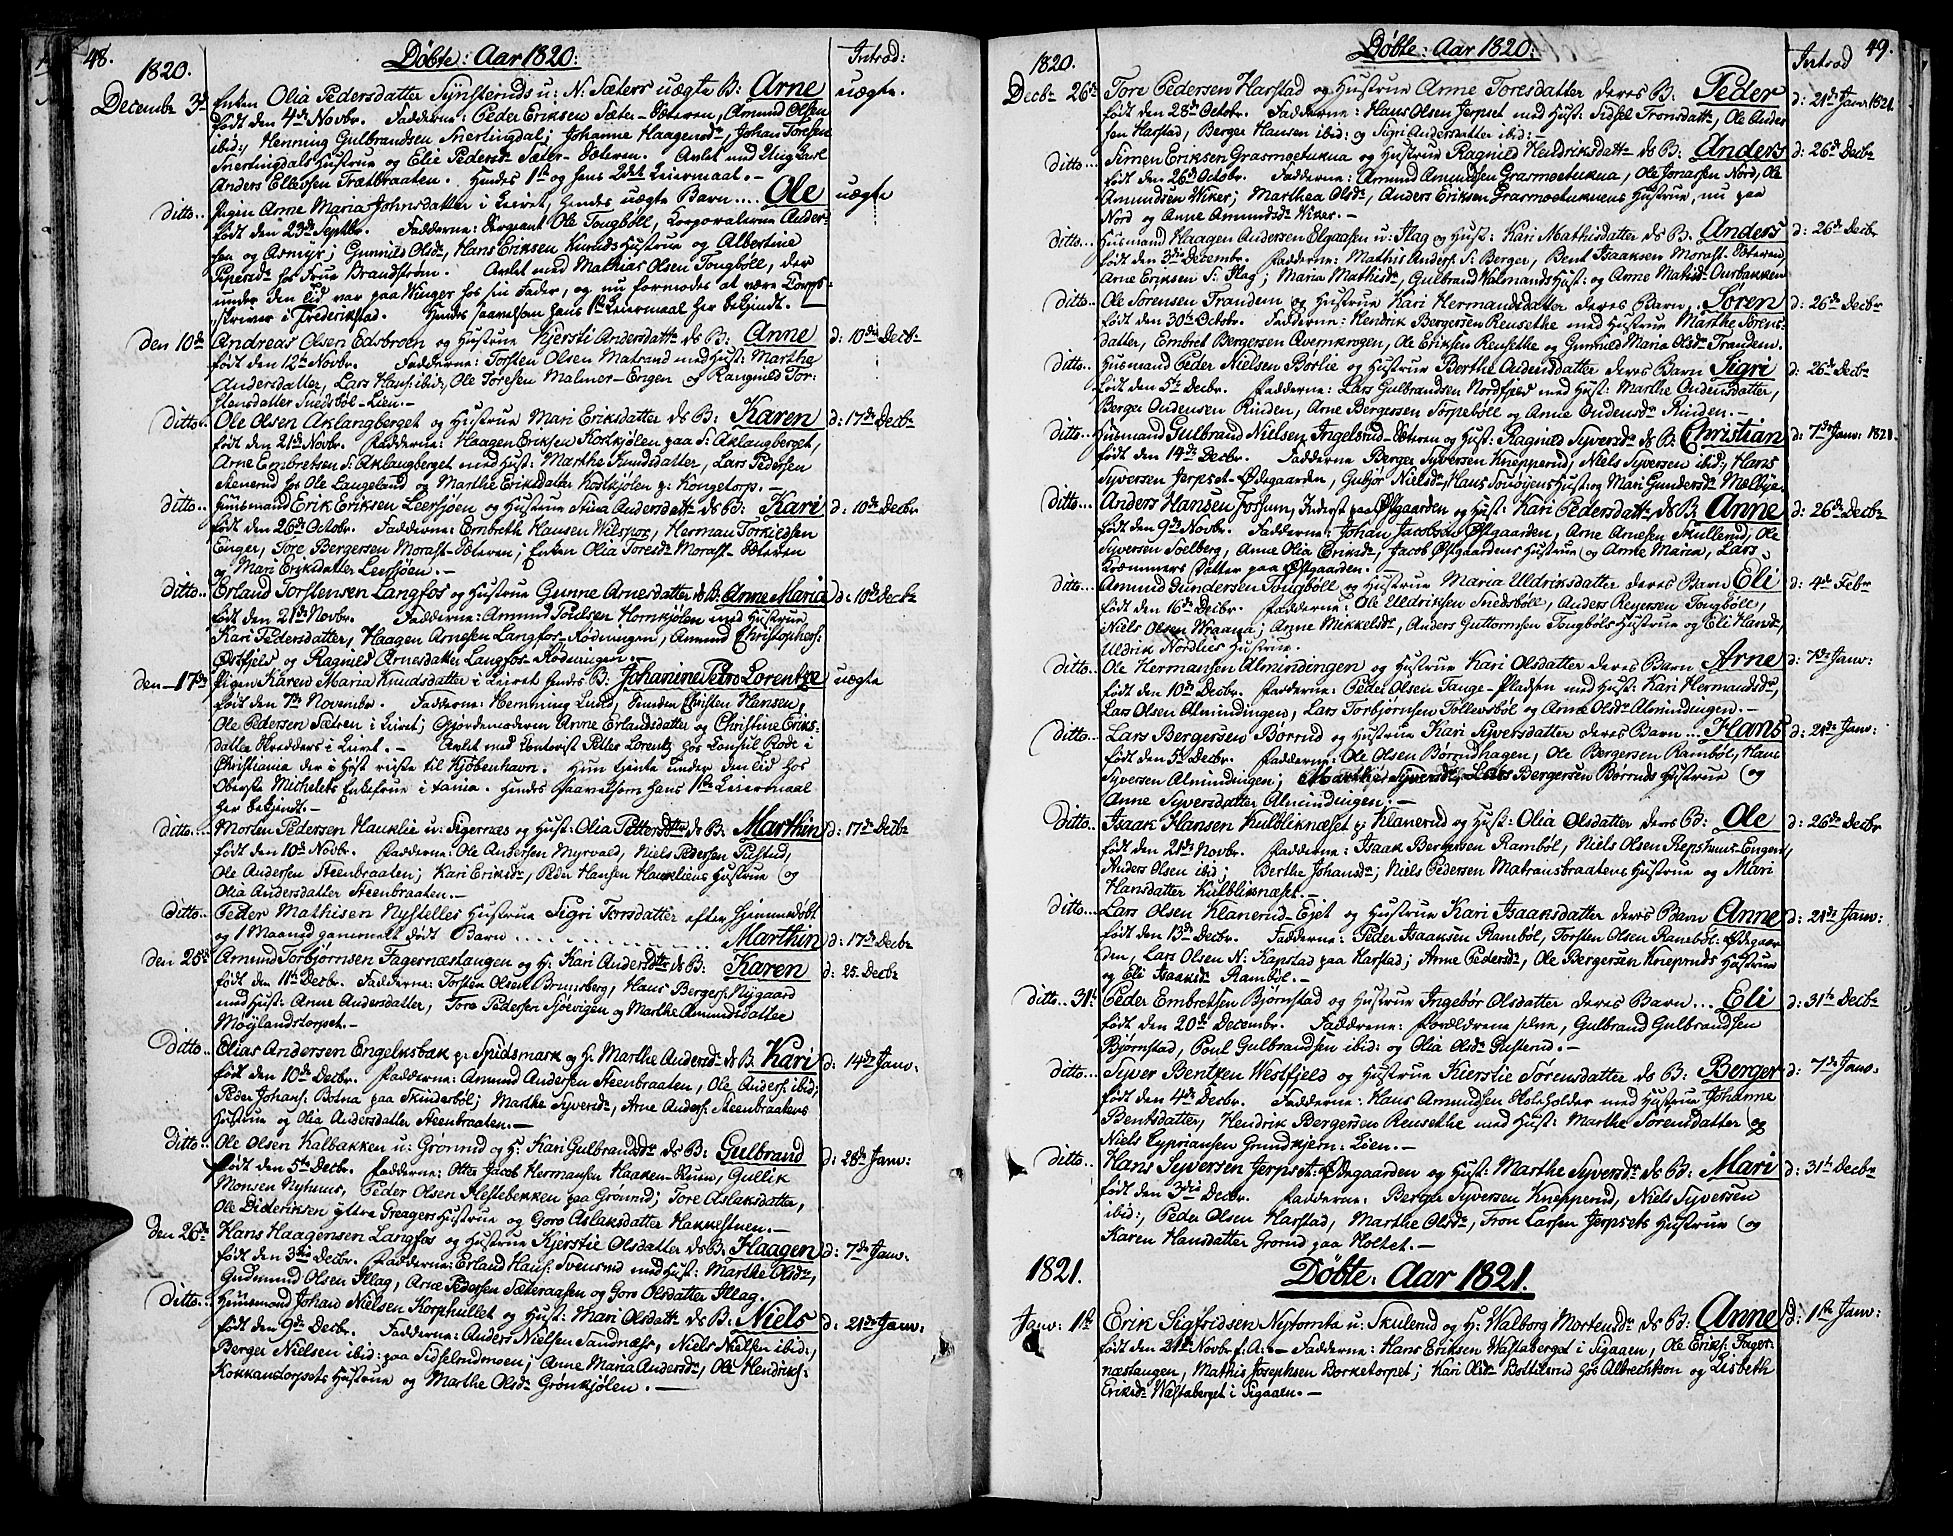 48.
1820.
Döbte: Aar 1820.
Introd:
Decembr 3d Enken Olia Pedersdatter Synsteruds u: N: Sæters uægte B: Arne uægte.
født den 4de Novbr. Fadderne: Peder Eriksen Sæter-Sæteren, Amund Olsen
ibid:, Henning Gulbrandsen Snertingdal; Johanne Haagensdr, Johan Toresen
Snertingdals Hustrue og Elie Pedersdr Sæter-Sæteren. Avlet med Ungkarl
Anders Ellevsen Trætbraaten. Hendes 1ste og hans 2det Leiermaal.-
ditto.. Pigen Anne Maria Johnsdatter i Leiret, hendes uægte Barn .... Ole uægte
født den 23de Septbr. Fadderne: Sergeant Ole Tougböll, Korporalerne Ander-
sen og Asmyr; Gunnild Olsdr, Hans Eriksen Knruds Hustrue og Albertine
Pepersdr hos Frue Brandstrøm. Avlet med Mathias Olsen Tougböll, der
under den Tid var paa Winger hos sin Fader, og nu formodes at være Corps-
skriver i Frederikstad. Hendes saavelsom hans 1ste Leiermaal her bekjendt.
den 10de Andreas Olsen Edsbroen og Hustrue Kjersti Andersdattr ds B: Anne d: 10de Decbr
født den 12te Novbr. Fadderne: Torsten Olsen Matrand med Hust: Marthe
Andersdatter, Lars Hans: ibid:, Ole Toresen Malmer-Engen og Rangnild Tor-
stensdatter Snedsböl-Lien.-
ditto. Ole Olsen Aklangberget og Hustrue Mari Eriksdatter ds B: Karen d: 17de Decbr
født den 21de Novbr. Fadderne: Haagen Eriksen Kolkjölen paa S: Aklangberget,
Arne Embretsen S: Aklangberget med Hust: Marthe Knudsdatter, Lars Pedersen
Stenerud hos Ole Langeland og Marthe Eriksdatter Kolkjölen p: Kongetorp.-
ditto Huusmand Erik Eriksen Leersjöen og Hustrue Stina Andersdatt: ds B: Kari d: 10de Decbr
født den 26de Octobr. Fadderne: Embreth Hansen Wilspor, Herman Torkildsen
Enger, Tore Bergersen Morast-Sæteren; Enken Olia Toresdr Morast-Sæteren
og Mari Eriksdatter Leersjöen.-
ditto.. Erland Torstensen Langfos og Hustrue Gunne Arnesdatter ds B: Anne Maria d: 10de Decbr
født den 21de Novbr. Fadderne: Amund Poulsen Hornkjölen med Hustrue
Kari Pedersdatter, Haagen Arnesen Langfos-Rödningen, Amund Christophers:
Østfjeld og Ragnild Arnesdatter Langfos-Rödningen.-
den 17de Pigen Karen Maria Knudsdatter i Leiret hends B: Johanine Petro Lorentze uægte
født den 7de Novembr. Fadderne: Hemming Lund, Svenden Christen Hansen,
Ole Pedersen Sætren i Leiret; Gjordemoderen Anne Erlandsdatter og Christine Eriks-
datter Skredders i Leiret.- Avlet med Contorist Petter Lorentz hos Consul Rode i
Christiania der i Høst reiste til Kjöbenhavn. Hun tjente under den Tid hos
Oberste Michelets Enkefrue i Xania. Hendes saavelsom hans 1ste Leiermaal
her bekjendt.-
ditto.. Morten Pedersen Hauklie u: Sigernæs og Hust: Olia Pettersdr ds B: Marthin d: 17de Decbr
født den 10de Novbr. Fadderne: Ole Andersen Myrvald, Niels Pedersen Pilstud,
Ole Andersen Steenbraaten; Kari Eriksdr, Peder Hansen Haukliens Hustrue og
Olia Andersdatter Steenbraaten.-
ditto.. Peder Mathisen Nystelles Hustrue Sigri Toresdatter efter hjemmedöbt
og 1 Maaned gammelt dödt Barn ............ Marthin d: 17de Decbr
den 25de Amund Torbjørnsen Fagernæstangen og H: Kari Andersdtr ds B: Karen d: 25. Decbr
født den 11te Decbr. Fadderne: Torsten Olsen Brunsberg, Hans Bergers: Nygaard
med Hust: Anne Andersdatter, Tore Pedersen Sjøevigen og Marthe Amundsdatter
Moylandstorpset.-
Ditto.. Elias Andersen Engelksbak p: Spidsmark og H: Marthe Andersdr ds B. Kari d: 14de Janv:
født den 10de Decbr. Fadderne: Amund Andersen Steenbraaten, Ole Anders: ibid;
Peder Johans: Botna paa Skinderböl; Marthe Syversdr, Arne Anders: Steenbraatens
Hustrue og Olia Andersdatter Steenbraaten.-
ditto.. Ole Olsen Kalbakken u: Grönnud og H: Kari Gulbrandsdr ds B: Gulbrand d: 28de Janv:
født den 5te Decbr. Fadderne: Otto Jacob Hermansen Haaken-Ruun, Gullik
Monsen Nyhuus, Peder Olsen Hestebekken paa Grönnud; Tore Aslaksdatter,
Ole Dideriksen yttre Greagers Hustrue og Goro Aslaksdatter Hakkestuen.-
den 26de Hans Haagensen Langfos og Hustrue Kjerstie Olsdatter ds B: Haagen d: 7de Janv.
født den 3die Decbr. Fadderne: Erland Hans: Svensrud med Hust: Marthe Olsdr,
Gudmund Olsen Slag, Arne Pedersen Sæteraasen og Goro Olsdatter Slag.
Ditto.. Huusmand Johan Nielsen Korphullet og Hust: Mari Olsdattr ds B: Niels d: 21de Janv:
født den 9de Decbr. Fadderne: Anders Nielsen Sandnæss, Niels Nielsen ibid:,
Berger Nielsen ibid: paa Sidselrudmoen; Anne Maria Andersdr, Ole Hendriks:
Kokkantorpsets Hustrue og Marthe Olsdr Grönkjölen.-
49.
1820.
Döbte: Aar 1820.
Introd
Decbr 26de Tore Pedersen Harstad og Hustrue Anne Toresdatter deres B: Peder d: 21de Janv 1821
født den 28de Octobr. Fadderne: Hans Olsen Jerpset med Hust: Sidsel Tronsdattr, Ole Ander
sen Harstad, Berger Hansen ibid: og Sigri Andersdatter ibid:-
ditto... Simen Eriksen Grasmoetukua og Hustrue Ragnild Hendriksdattr ds B: Anders d: 26de Decbr
født den 26de Octobr. Fadderne: Amund Amundsen Grasmoetukua, Ole Jonasen Nord, Ole
Amundsen Wiker; Marthea Olsdr, Anders Eriksen Grasmoetukuens Hustrue, nu paa
Nord og Anne Amundsdr Wiker.-
ditto.. Huusmand Haagen Andersen Elgaasen u: Slag og Hust: Kari Mathisdatter ds B: Anders d: 26de Decbr
født den 3die Decembr. Fadderne: Mathis Anders: S: Berger, Bent Isaaksen Morast-Sæteren,
Arne Eriksen S: Slag; Maria Mathisdr, Gulbrand Valmands Hust: og Anne Mathisdr Ourbakken
ditto.. Ole Sørensen Trandem og Hustrue Kari Hermandsdatter deres Barn .. Søren d: 26de Decbr
født den 30te Octobr. Fadderne: Hendrik Bergersen Rensethe med Hustrue Marthe Sørens-
datter, Embret Bergersen Avernkrogen, Ole Eriksen Rensethe og Gunnild Maria Olsdr Trandem.
ditto.. Huusmand Peder Nielsen Börlie og Hustrue Berthe Audensdatter deres Barn Sigri d: 26de Decbr
født den 5te Decbr. Fadderne: Lars Gulbrandsen Nordfjeld med Hust: Marthe Audensdatter,
Berger Oudensen Rinden, Arne Bergersen Torpeböll og Anne Oudensdr Rinden.-
ditto.. Huusmand Gulbrand Nielsen Ingelsrud-Sæteren og Hust: Ragnild Syversdr ds B: Christian d: 7de Janv: 1821.
født den 14de Decbr. Fadderne Berger Syversen Knepperud, Niels Syversen ibid:, Hans
Syversen Jerpset-Ødegaarden, Gubjør Nielsdr, Hans Hust: og Mari Gundersdr Mælbye
ditto.. Anders Hansen Fossum, Inderst paa Østgaarden og Hust: Kari Pedersdatt: ds B Anne d: 26de Decbr
født den 9de Novbr. Fadderne: Johan Jacobsen Østgaarden, Arne Arnesen Skullerud, Ole
Syversen Soelberg, Anne Olia Eriksdr, Jacob Østgaardens Hustrue og Anne Maria, Lars
Kræmmers Datter paa Østgaarden.-
ditto.. Amund Gundersen Tougböll og Hustrue Maria Uldriksdatter deres Barn Eli d: 4de Febr
født den 16de Decbr. Fadderne: Ole Uldriksen Snedsböll, Anders Reyersen Tougböll,
Niels Olsen Wraana; Anne Mikkelsdr, Anders Guttormsen Tougböls Hustrue og Eli Hansdr,
Uldrik Nordlies Hustrue.
ditto.. Ole Hermansen Almindingen og Hustrue Kari Olsdatter deres Barn Arne d: 7de Janv:
født den 10de Decbr. Fadderne: Peder Olsen Tange-Pladsen med Hust: Kari Hermandsdr,
Lars Olsen Almindingen, Lars Torbjørnsen Tollevsböl og Anne Olsdr Almindingen.-
ditto... Lars Bergersen Börrud og Hustrue Kari Syversdatter deres Barn ... Hans d: 21de Janv:
født den 5te Decbr. Fadderne: Ole Olsen Börrudhagen, Ole Bergersen Ramböl, Hans
Syversen Almindingen; Marthe Syversdr, Lars Bergersen Börruds Hustrue og
Anne Syversdatter Almindingen.-
ditto.. Isaak Hansen Kulbliknæset p: Klanerud og Hust: Olia Olsdatter deres B: Ole d: 26de Decbr
født den 21de Novbr. Fadderne: Isaak Bergersen Ramböl, Niels Olsen Repshuus-Engen,
Anders Olsen ibid; Berthe Johansdr, Niels Pedersen Matransbraatens Hustrue og Mari
Hansdatter Kulbliknæset.-
ditto... Lars Olsen Klanerud-Ejet og Hustrue Kari Isaaksdatter deres Barn Anne d: 21de Janv:
født den 13de Decbr. Fadderne: Peder Isaaksen Ramböl, Torsten Olsen Ramböl: Ødegaar
den, Lars Olsen N: Kapstad paa Harstad; Anne Pedersdr, Ole Bergersen Kneprud's Hustrue
og Eli Isaaksdr Ramböl.-
ditto.. 31te Peder Embretsen Bjørnstad og Hustrue Ingebør Olsdatter deres Barn... Eli d: 31te Decbr
født den 20de Decembr. Fadderne: Forældrene selve, Gulbrand Gulbrandsen
Bjørnstad, Poul Gulbrandsen ibid: og Olia Olsdr Gusterud.-
ditto... Syver Bentzen Westfjeld og Hustrue Kierstie Sørensdatter ds B: Berger d: 7de Janv:
født den 4de Decbr. Fadderne: Hans Amundsen Holeholder med Hustrue Johanne
Bentsdatter, Hendrik Bergersen Rensethe med Hust: Marthe Sorensdatter og
Niels Cypriansen Grundkjern: Löen.-
ditto... Hans Syversen Jerpset: Ødegaarden og Hust: Marthe Syversdr ds B: Mari d: 31te Decbr
født den 3die Decbr. Fadderne: Berger Syversen Knepperud, Niels Syversen
ibid:, Peder Olsen Harstad, Marthe Olsdr, Tron Larsen Jerpsets Hustrue og
Karen Hansdatter Grorud paa Holtet.-
1821. Döbte: Aar 1821.
Janv: 1ste Erik Sigfridsen Nytomta u: Skulerud og H: Walborg Mortensdr ds B: Anne d: 1ste Janv:
født den 21de Novbr f: A:- Fadderne: Hans Eriksen Wastaberget i Sigaaen, Ole Eriks: Fager-
næstangen, Mathis Josephsen Borketorpet; Kari Olsdr Bottilsrud hos Albrechtson og Lisbeth
Eriksdr Wastaberget i Sigaaen.-